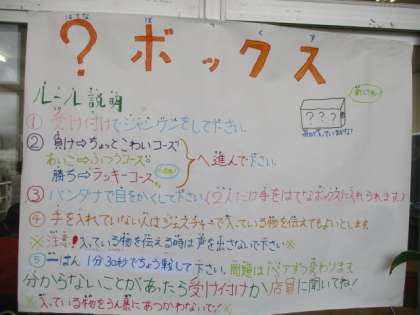 ？ボックス
はてな ぼっくす
ルール説明
①受け付けでジャンケンをして下さい
②負け⇨ちょっとこわいコース
あいこ⇨ふつうコース
勝ち⇨ラッキーコース
へ進んで下さい。
③バンダナで目をかくして下さい(2人だけ手をはてなボックスに入れられます)
④手を入れていない人はジェスチャーで入っている物を伝えてもよいとします
※注意!入っている物を伝える時は声を出さないで下さい※
⑤一ぱん1分30秒でちょう戦して下さい。問題は1つずつ変わります
分からないことがあったら受け付けか店員に聞いてね!
※入っている物をらん暴にあつかわないで!※
？？？